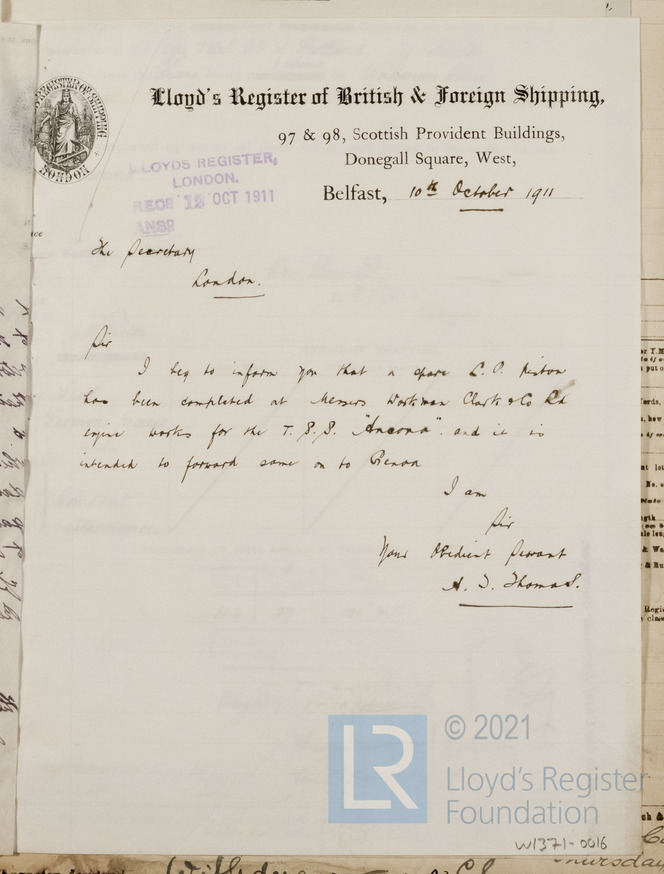 Lloyd's Register of British & Foreign Shipping,
97 & 98, Scottish Provident Buildings,
Donegall Square, West,
Belfast, 10th October 1911
LLOYDS REGISTER,
LONDON.
RECD 12 OCT 1911
The Secretary
London.
Sir
I beg to inform you that a spare L.P. Piston
has been completed at Messers Workman Clark & Co Ld
engine works for the T.S.S. "Ancona" and it is
intended to forward same on to Genoa
I am
Sir
Your Obedient Servant
A. J. Thomas.
© 2021
LR
Lloyd's Register
Foundation
W1371-0016